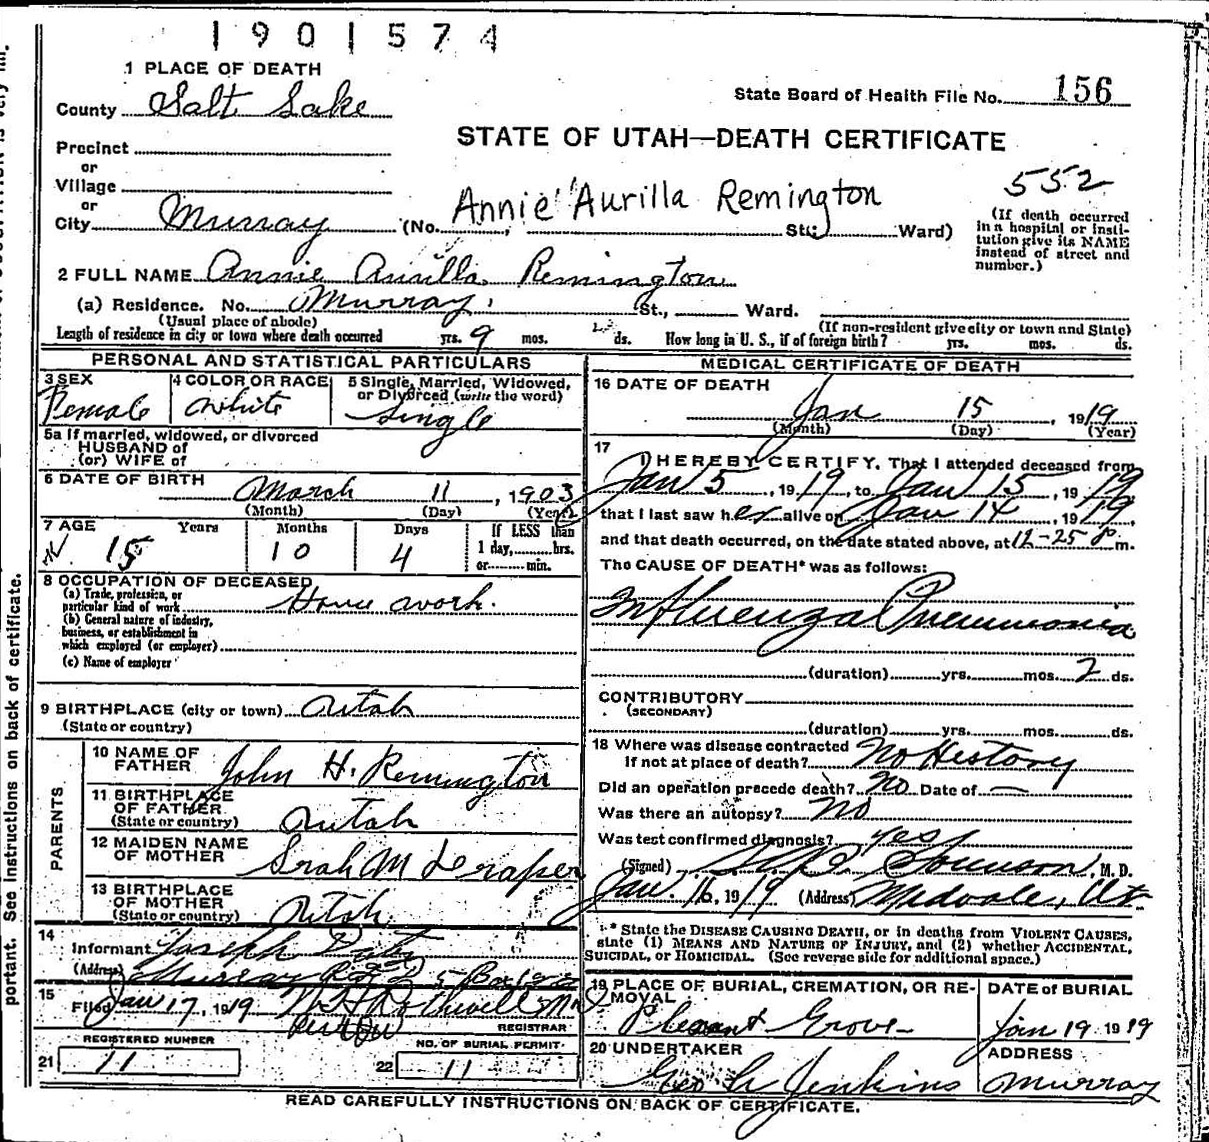 1901574
1 PLACE OF DEATH
County Salt Lake
State Board of Health File No. 156
STATE OF UTAH—DEATH CERTIFICATE
Precinct
or
Village
or
City Murray (No. St.; Ward)
Annie Aurilla Remington
552
(If death occurred
in a hospital or insti-
tution give its NAME
instead of street and
number.)
2 FULL NAME Annie Aurilla Remington
(a) Residence. No. Murray St., Ward.
(Usual place of abode) (If non-resident give city or town and State)
Length of residence in city or town where death occurred yrs. 9 mos. ds. How long in U. S., if of foreign birth? yrs. mos. ds.
PERSONAL AND STATISTICAL PARTICULARS
3 SEX Female
4 COLOR OR RACE White
5 Single, Married, Widowed,
or Divorced (write the word)
Single
5a If married, widowed, or divorced
HUSBAND of
(or) WIFE of
6 DATE OF BIRTH March 11, 1903
(Month) (Day) (Year)
7 AGE Years Months Days If LESS than
15 10 4 1 day, hrs.
or min.
8 OCCUPATION OF DECEASED
(a) Trade, profession, or
particular kind of work House work.
(b) General nature of industry,
business, or establishment in
which employed (or employer)
(c) Name of employer
9 BIRTHPLACE (city or town) Utah
(State or country)
PARENTS
10 NAME OF
FATHER John H. Remington
11 BIRTHPLACE
OF FATHER
(State or country) Utah
12 MAIDEN NAME
OF MOTHER Srah M Draper
13 BIRTHPLACE
OF MOTHER
(State or country) Utah
14
Informant Joseph
(Address) Murray
15
Filed Jan 17, 1919 Rothwell
REGISTRAR
REGISTERED NUMBER
21 11
NO. OF BURIAL PERMIT.
22 11
MEDICAL CERTIFICATE OF DEATH
16 DATE OF DEATH
Jan 15 1919
(Month) (Day) (Year)
17
I HEREBY CERTIFY, That I attended deceased from
Jan 5, 1919, to Jan 15, 1919,
that I last saw her alive on Jan 14, 1919,
and that death occurred, on the date stated above, at 12-25 P m.
The CAUSE OF DEATH* was as follows:
Influenza Pneumonia
(duration) yrs. mos. 2 ds.
CONTRIBUTORY
(SECONDARY)
(duration) yrs. mos. ds.
18 Where was disease contracted
If not at place of death? No History
Did an operation precede death? No Date of —
Was there an autopsy? No
Was test confirmed diagnosis? yes
(Signed) M. D.
Jan. 16, 1919 (Address) Midvale, Ut
* State the DISEASE CAUSING DEATH, or in deaths from VIOLENT CAUSES,
state (1) MEANS AND NATURE OF INJURY, and (2) whether ACCIDENTAL,
SUICIDAL, or HOMICIDAL. (See reverse side for additional space.)
19 PLACE OF BURIAL, CREMATION, OR RE-
MOVAL
Pleasant Grove
DATE of BURIAL
Jan 19 1919
20 UNDERTAKER
Jenkins
ADDRESS
Murray
READ CAREFULLY INSTRUCTIONS ON BACK OF CERTIFICATE.
portant. See instructions on back of certificate.